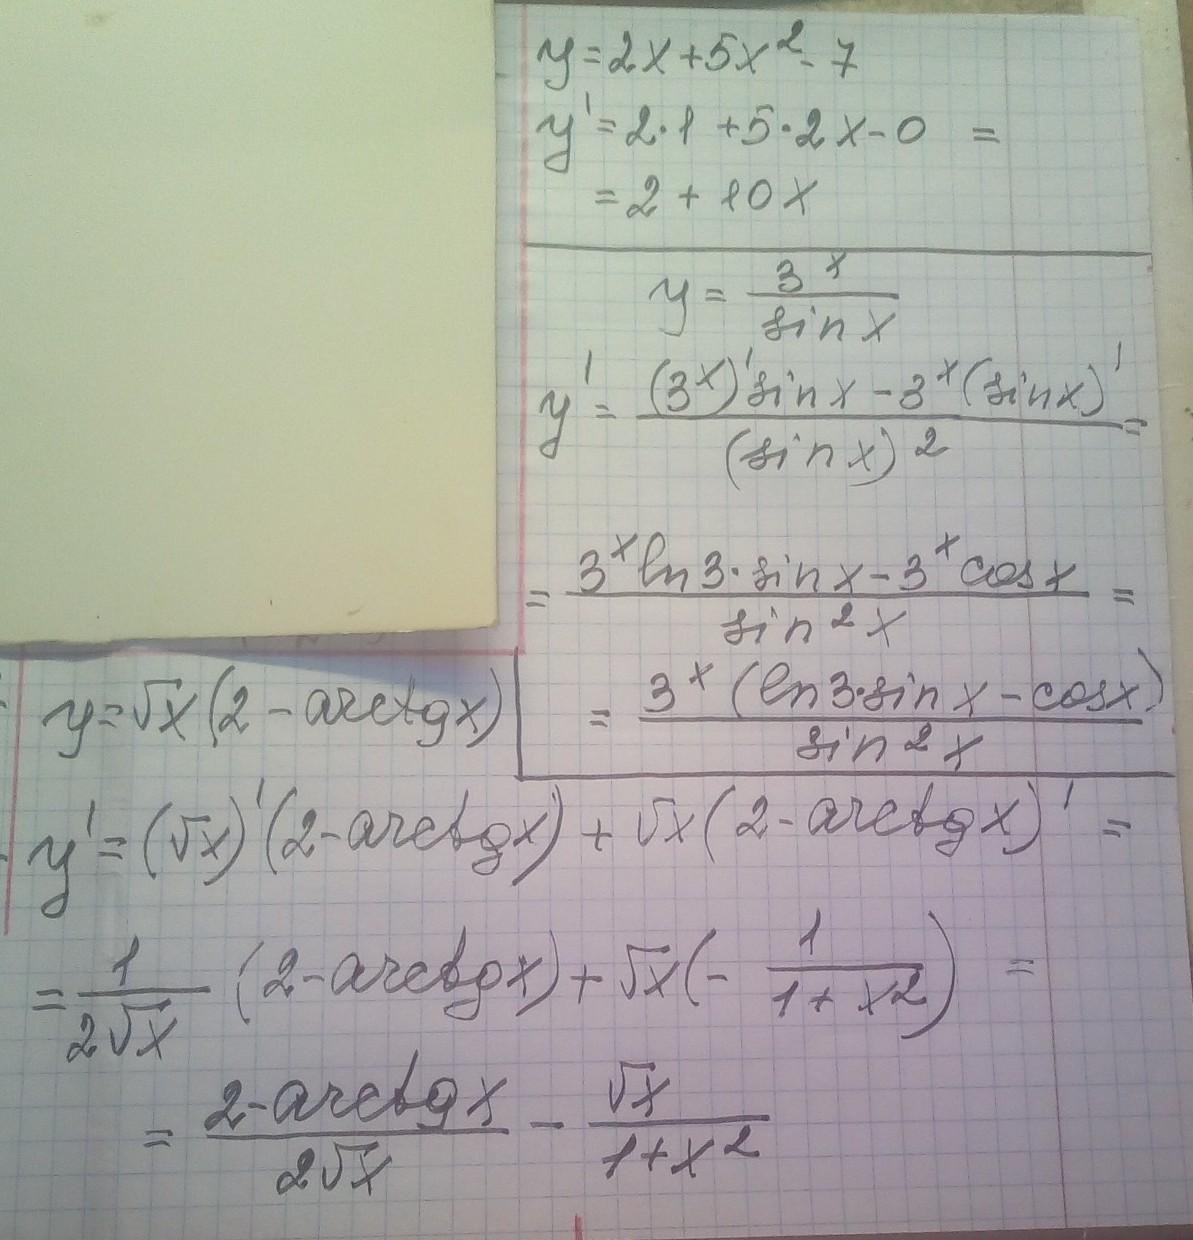 y = 2x + 5x² - 7
y' = 2·1 + 5·2x - 0 =
= 2 + 10x
y = 3^x / sin x
y' = ((3^x)' sin x - 3^x (sin x)') / (sin x)² =
= (3^x ln 3 · sin x - 3^x cos x) / sin² x =
= 3^x (ln 3 · sin x - cos x) / sin² x
y = √x (2 - arctg x)
y' = (√x)' (2 - arctg x) + √x (2 - arctg x)' =
= 1 / (2√x) (2 - arctg x) + √x (- 1 / (1 + x²)) =
= (2 - arctg x) / (2√x) - √x / (1 + x²)